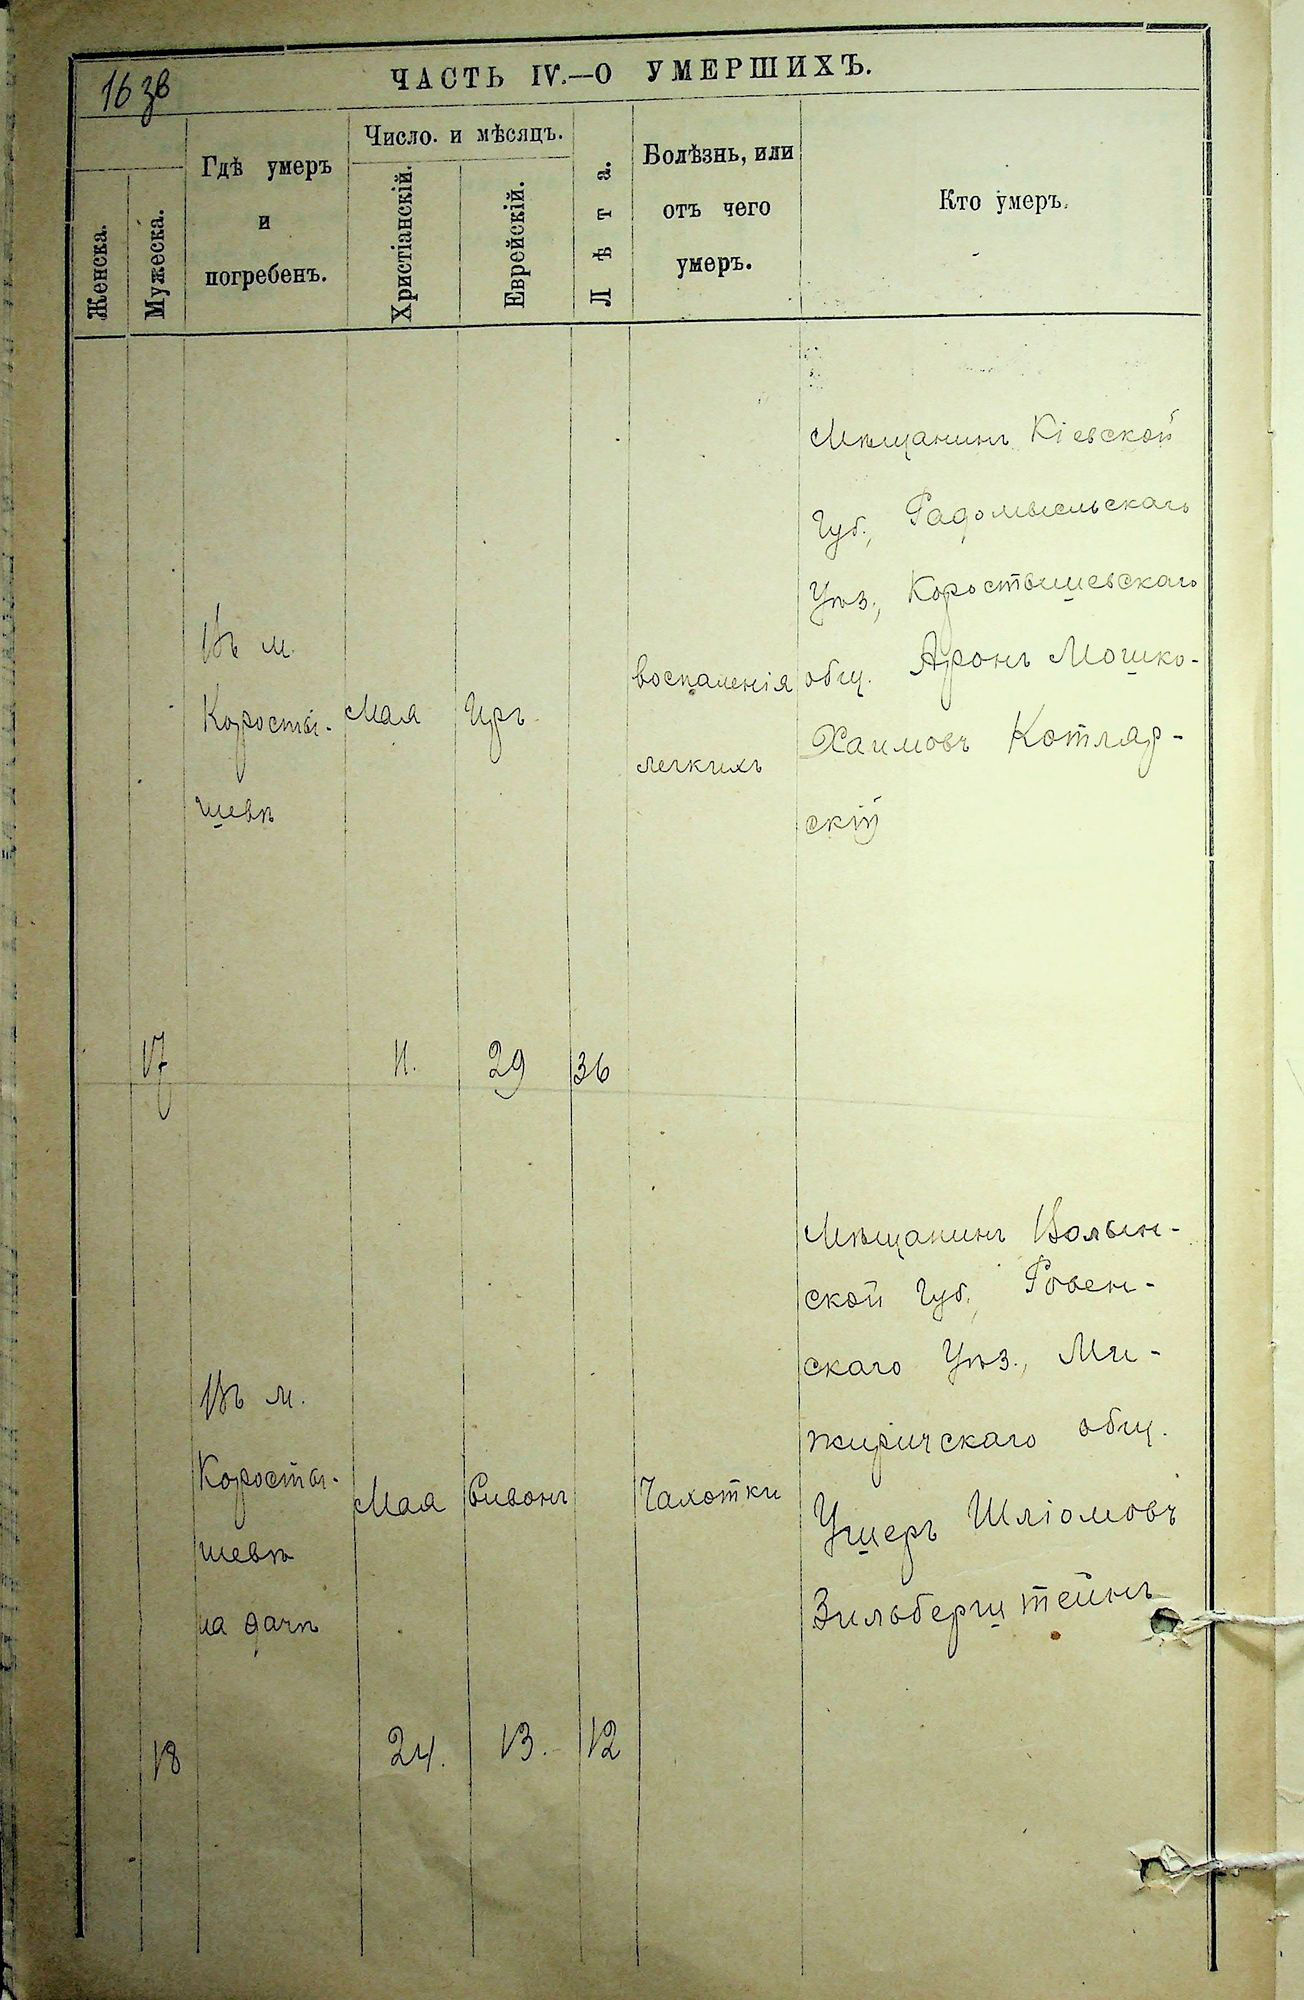 16 зв
ЧАСТЬ IV.—О УМЕРШИХЪ.
Женска.
Мужеска.
Гдѣ умеръ
и
погребенъ.
Число и мѣсяцъ.
Христіанскій.
Еврейскій.
Лѣта.
Болѣзнь, или
отъ чего
умеръ.
Кто умеръ.
Въ м.
Косты-
шевѣ
Мая
Иръ
воспаленія
легкихъ
Мѣщанинъ Кіевской
Губ., Радомысльскаго
Уѣз., Коростышевскаго
общ. Аронъ Мошко-
Хаимовъ Котляр-
скій
17
11.
29
36
Въ м.
Коросты-
шевѣ
на дачѣ
Мая
Сивонъ
Чахотки
Мѣщанинъ Волын-
ской Губ., Ровен-
скаго Уѣз., Ми-
жиричскаго общ.
Ушеръ Шліомовъ
Зильберштейнъ
18
24.
13.
12